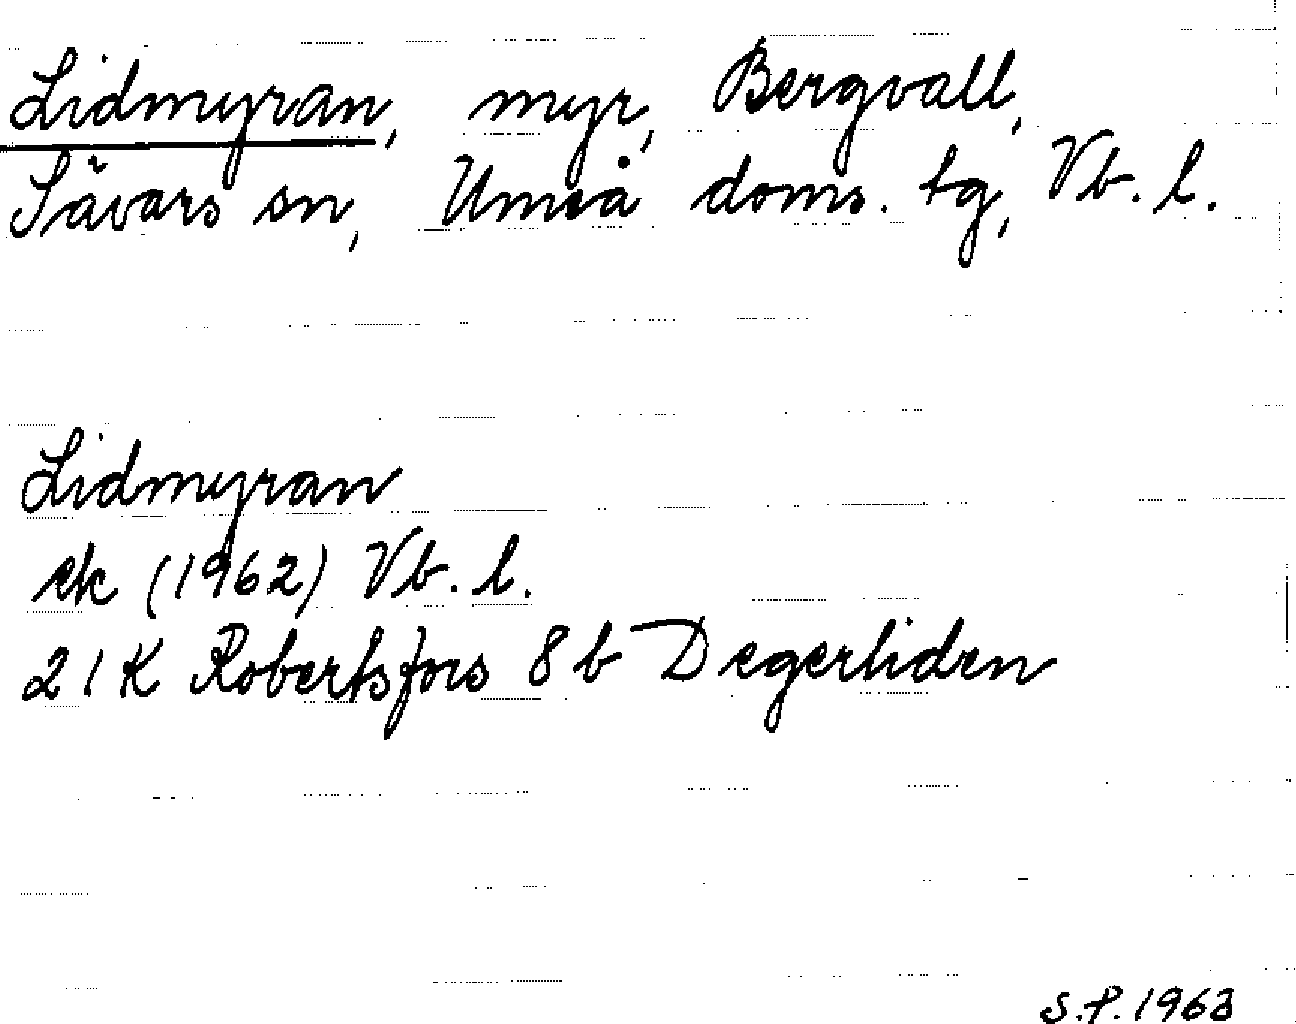 Lidmyran, myr, Bergvall,
Sävars sn, Umeå doms. tg, Vb. l.
Lidmyran
ek (1962) Vb. l.
21K Robertsfors 8b Degerliden
S.P. 1963